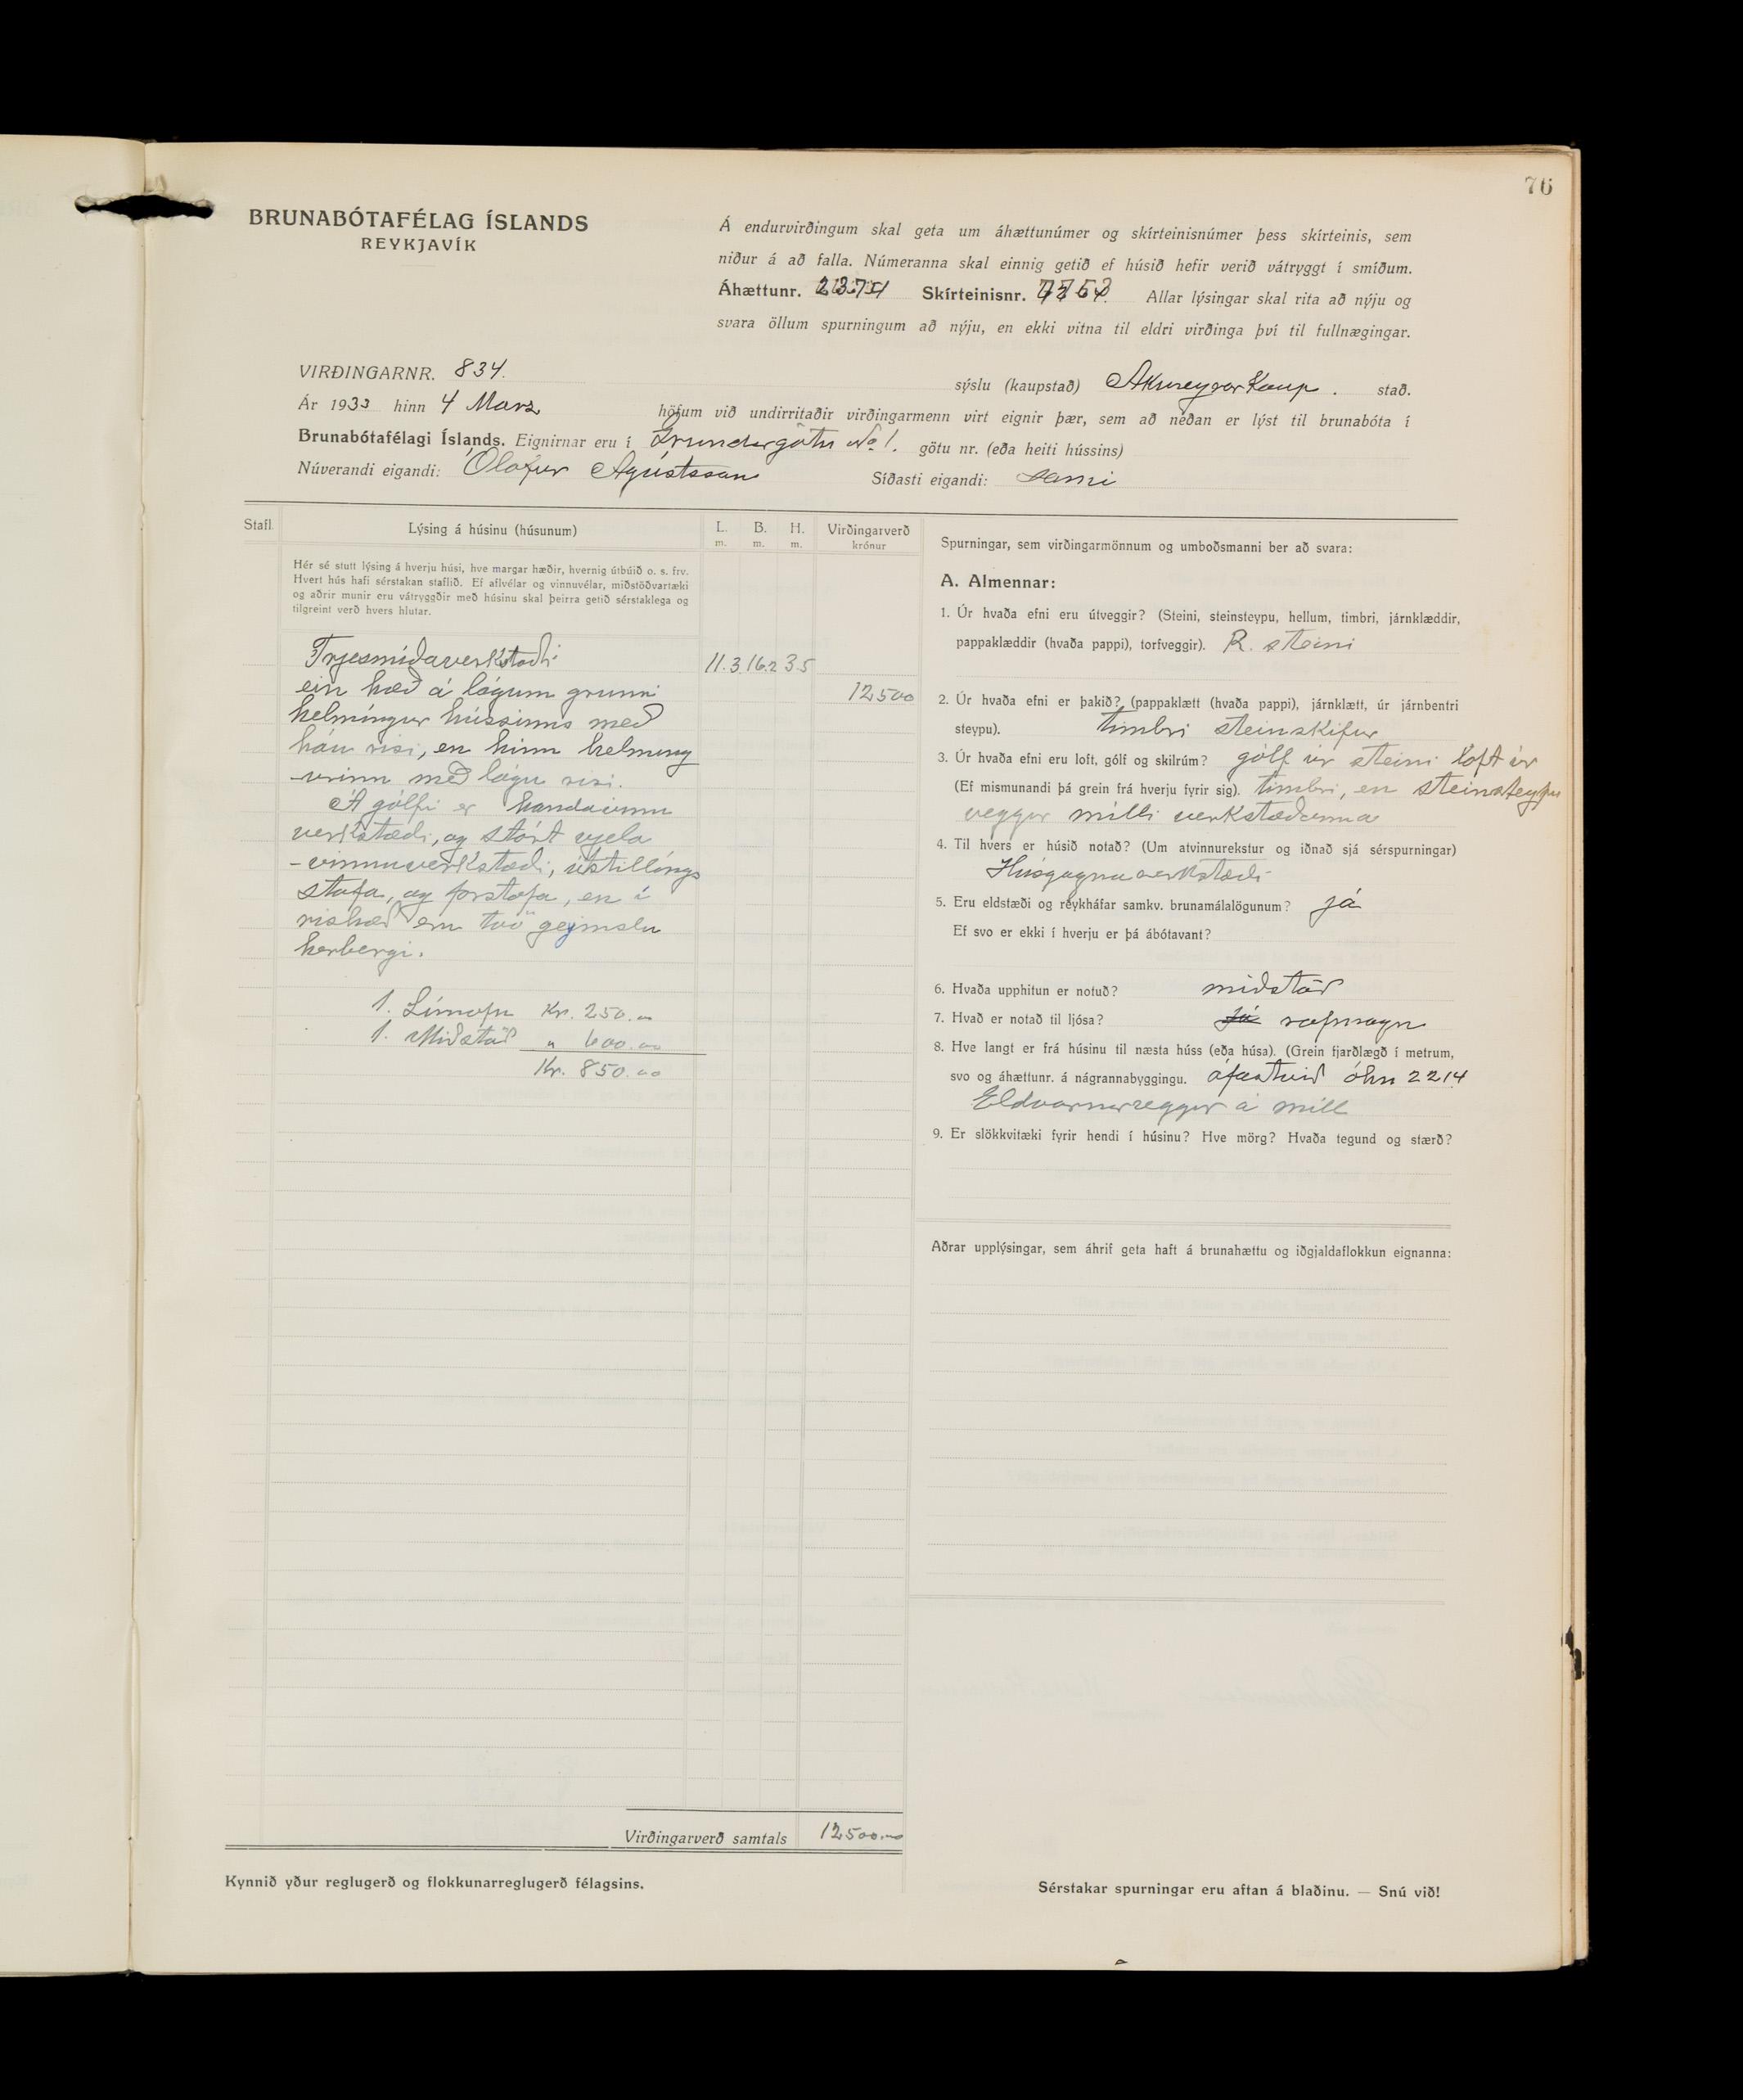 76
BRUNABÓTAFÉLAG ÍSLANDS
REYKJAVÍK
Á endurvirðingum skal geta um áhættunúmer og skírteinisnúmer þess skírteinis, sem
niður á að falla. Númeranna skal einnig getið ef húsið hefir verið vátryggt í smíðum.
Áhættunr. Skírteinisnr. Allar lýsingar skal rita að nýju og
svara öllum spurningum að nýju, en ekki vitna til eldri virðinga því til fullnægingar.
VIRÐINGARNR. 834.
sýslu (kaupstað) Akureyrar Kaup. stað.
Ár 1933 hinn 4 Marz höfum við undirritaðir virðingarmenn virt eignir þær, sem að neðan er lýst til brunabóta í
Brunabótafélagi Íslands. Eignirnar eru í Grundargötu No 1. götu nr. (eða heiti hússins)
Núverandi eigandi: Ólafur Agústsson Síðasti eigandi: sami
Stafl. Lýsing á húsinu (húsunum) L. m. B. m. H. m. Virðingarverð krónur
Hér sé stutt lýsing á hverju húsi, hve margar hæðir, hvernig útbúið o. s. frv.
Hvert hús hafi sérstakan staflið. Ef aflvélar og vinnuvélar, miðstöðvartæki
og aðrir munir eru vátryggðir með húsinu skal þeirra getið sérstaklega og
tilgreint verð hvers hlutar.
Trjesmíðaverkstæði 11.3 16.2 3.5
ein hæð á lágum grunni 12500
helmingur hússinns með
háu risi, en hinn helming
-urinn með lágu risi.
Á gólfi er handavinnu
verkstæði, og stórt vjela
-vinnuverkstæði, útstillings
stofa, og forstofa, en í
rishæð eru tvö geymslu
herbergi.
1. Límofn Kr. 250.00
1. Miðstöð " 600.00
Kr. 850.00
Virðingarverð samtals 12500.00
Kynnið yður reglugerð og flokkunarreglugerð félagsins.
Spurningar, sem virðingarmönnum og umboðsmanni ber að svara:
A. Almennar:
1. Úr hvaða efni eru útveggir? (Steini, steinsteypu, hellum, timbri, járnklæddir,
pappaklæddir (hvaða pappi), torfveggir). R. steini
2. Úr hvaða efni er þakið? (pappaklætt (hvaða pappi), járnklætt, úr járnbentri
steypu). timbri steinskífur
3. Úr hvaða efni eru loft, gólf og skilrúm? gólf úr steini loft úr
(Ef mismunandi þá grein frá hverju fyrir sig). timbri, en steinsteypu
veggur milli verkstæðanna
4. Til hvers er húsið notað? (Um atvinnurekstur og iðnað sjá sérspurningar)
Húsgagnaverkstæði
5. Eru eldstæði og reykháfar samkv. brunamálalögunum? já
Ef svo er ekki í hverju er þá ábótavant?
6. Hvaða upphitun er notuð? miðstöð
7. Hvað er notað til ljósa? Já rafmagn
8. Hve langt er frá húsinu til næsta húss (eða húsa). (Grein fjarðlægð í metrum,
svo og áhættunr. á nágrannabyggingu. áfastvið óhn 2214
Eldvarnarveggur á mill
9. Er slökkvitæki fyrir hendi í húsinu? Hve mörg? Hvaða tegund og stærð?
Aðrar upplýsingar, sem áhrif geta haft á brunahættu og iðgjaldaflokkun eignanna:
Sérstakar spurningar eru aftan á blaðinu. — Snú við!